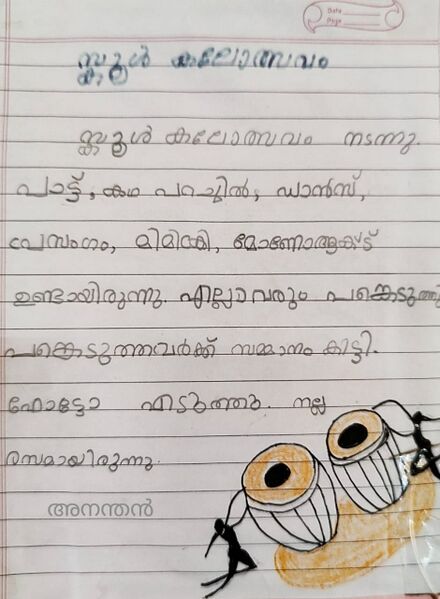 Date
Page
സ്കൂൾ കലോത്സവം
സ്കൂൾ കലോത്സവം നടന്നു.
പാട്ട്, കഥ പറച്ചിൽ, ഡാൻസ്,
പ്രസംഗം, മിമിക്രി, മോണോആക്ട്
ഉണ്ടായിരുന്നു. എല്ലാവരും പങ്കെടുത്തു
പങ്കെടുത്തവർക്ക് സമ്മാനം കിട്ടി.
ഫോട്ടോ എടുത്തു. നല്ല
രസമായിരുന്നു.
അനന്തൻ